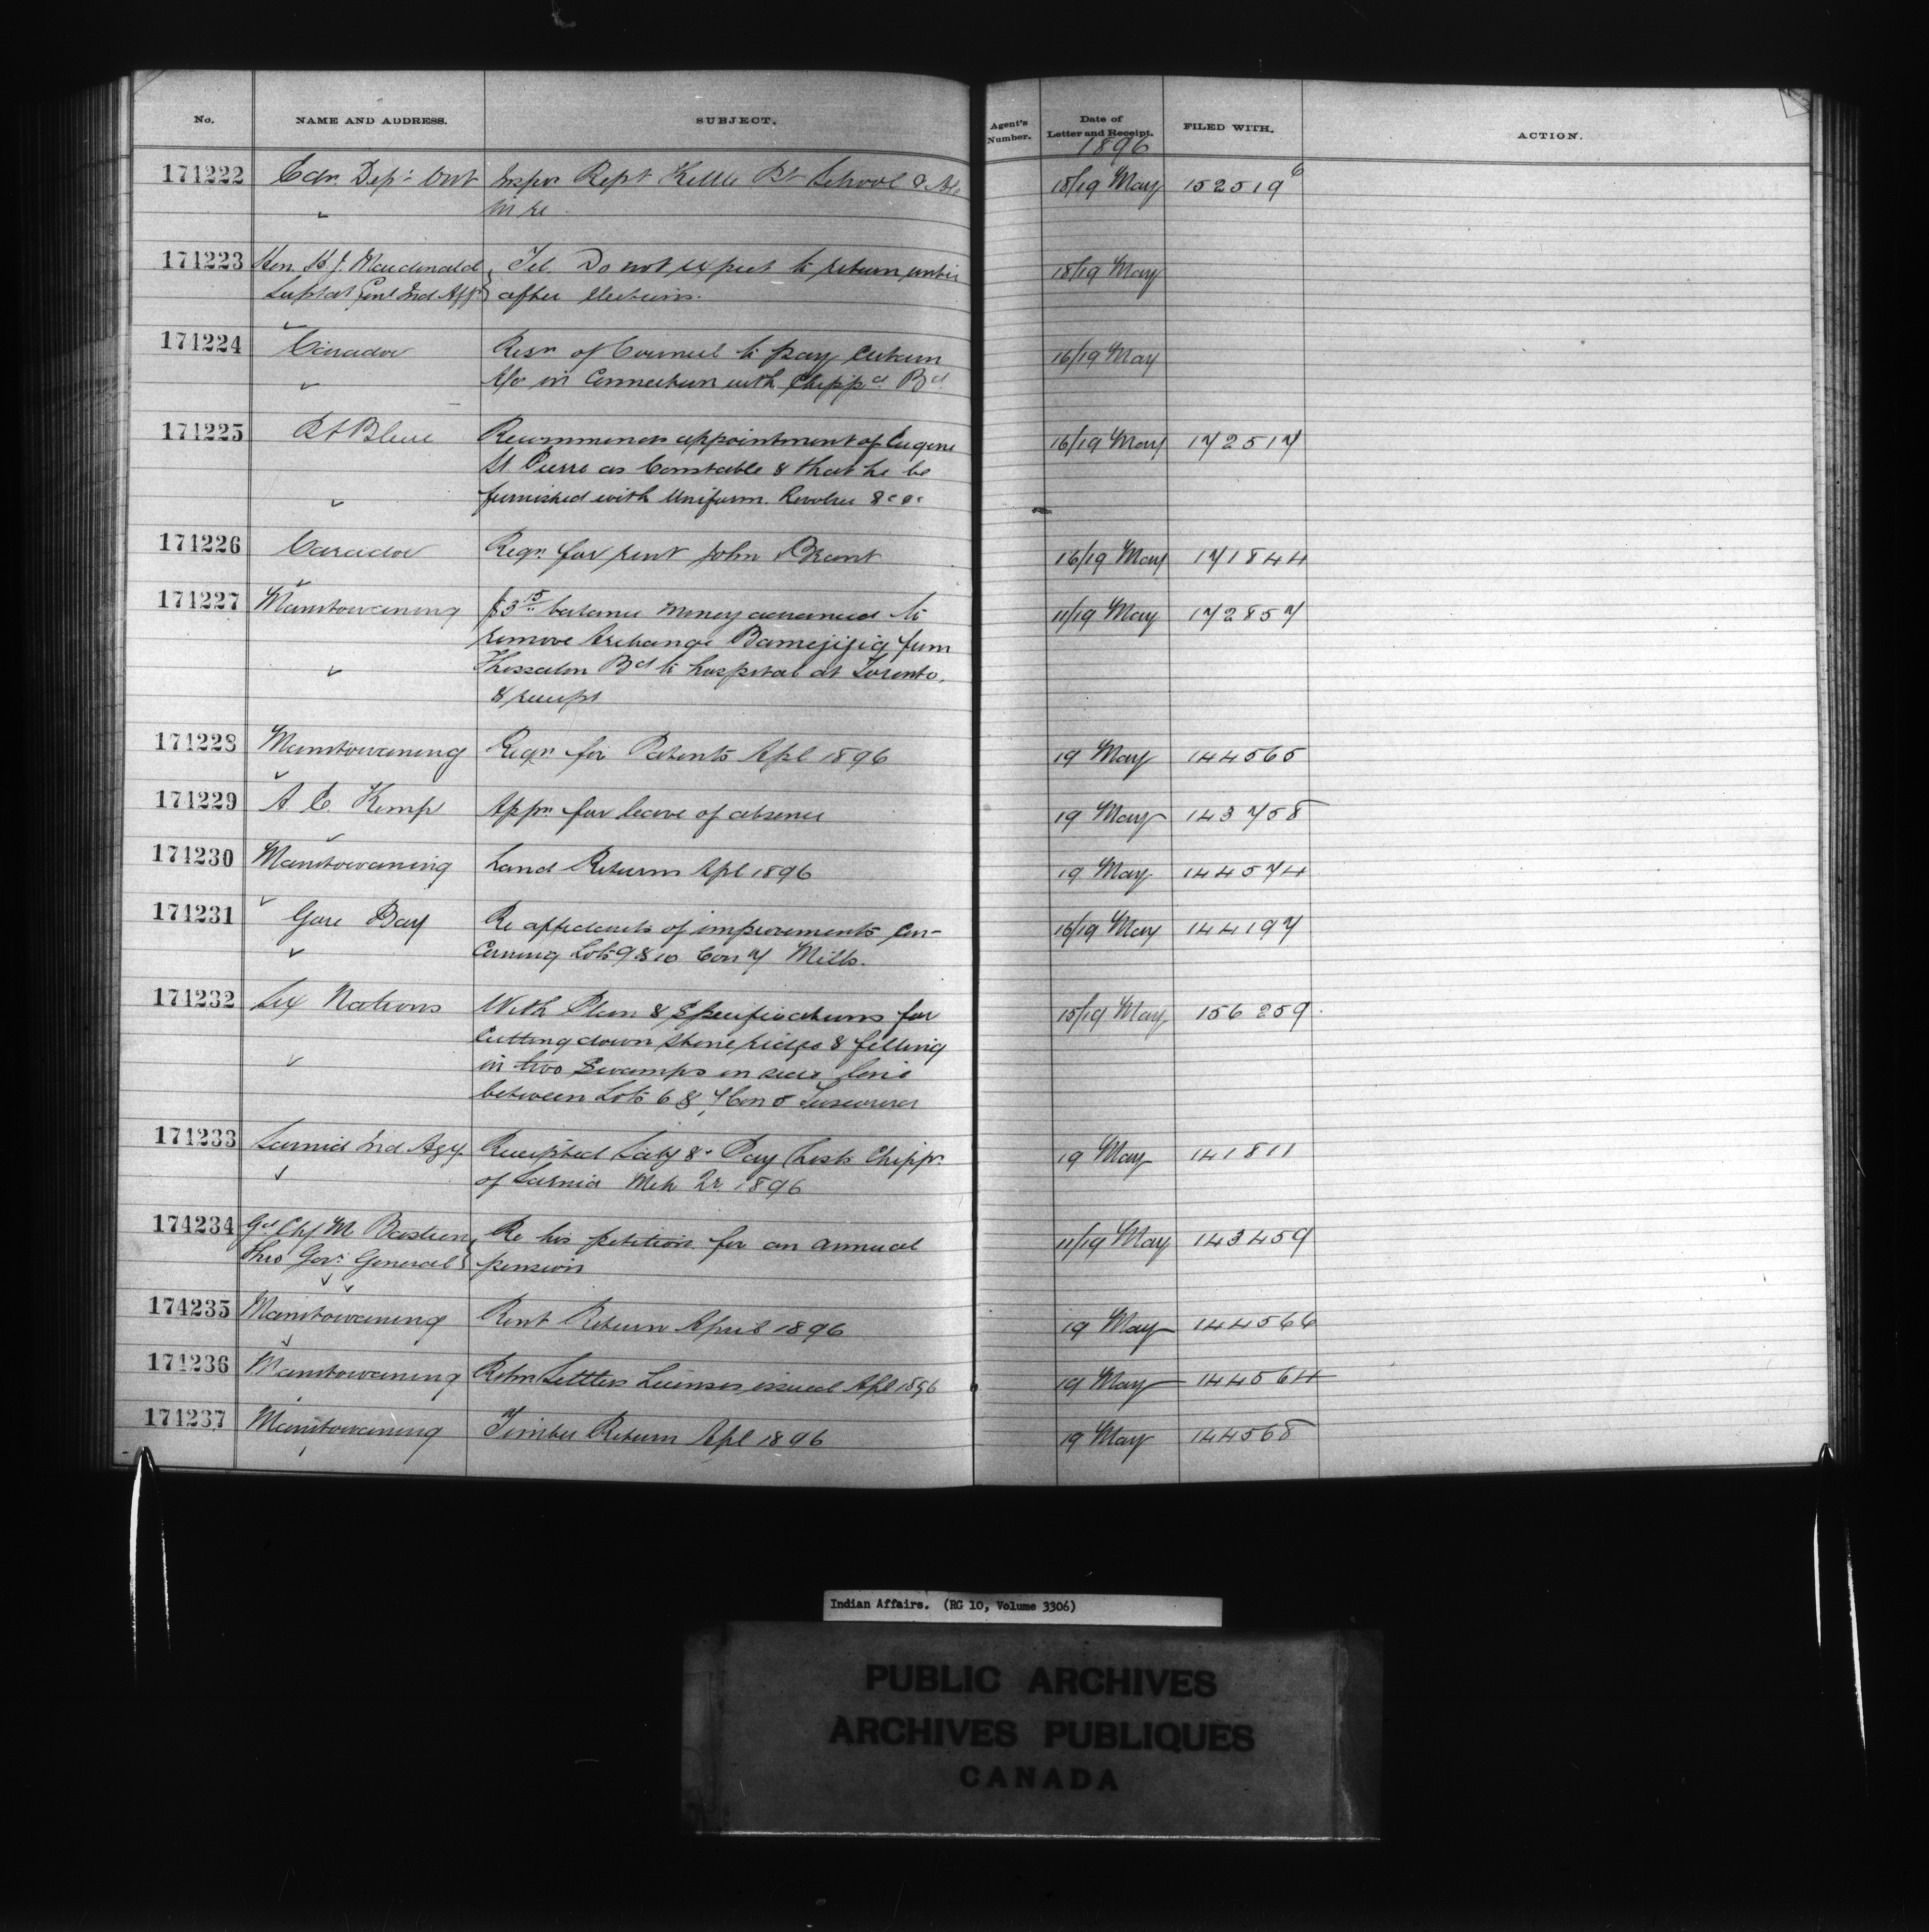 No. NAME AND ADDRESS. SUBJECT. Agent's Number. Date of Letter and Receipt. FILED WITH. ACTION.
1896
174222 Edn. Dep't Ont Insprs Rept Kettle Pt School & A/c 18/19 May 152519 6
" in re
174223 Hon. H J. Macdonald Tel. Do not expect to return until 18/19 May
Suptdt Genl Ind Affs after elections.
174224 Caradoc Resn of Council to pay certain 16/19 May
" A/c in connection with Chipp's Bd
174225 Pt Bleue Recommends appointment of Eugene 16/19 May 172517
St Pierre as Constable & that he be
" furnished with Uniform. Revolver &c &c
174226 Caradoc Reqn for rent John Brant 16/19 May 171844
174227 Manitowaning $3 15 balance money advanced to 11/19 May 172857
remove Archange Bamejijig from
" Thessalon Bd to hospital at Toronto.
& receipt
174228 Manitowaning Reqn for Patents Apl 1896 19 May 144565
174229 A. E. Kemp Appn for leave of absence 19 May 143758
174230 Manitowaning Land Returns Apl 1896 19 May 144574
174231 Gore Bay Re affidavits of improvements con- 16/19 May 144197
" cerning Lots 9 & 10 Con 7 Mills.
174232 Six Nations With Plan & Specifications for 15/19 May 156259
cutting down stone ridge & filling
" in two Swamps on side line
between Lots 6 & 7 Con 5 Tuscarora
174233 Sarnia Ind Agy. Receipted Saly & Pay lists Chipps. 19 May 141811
of Sarnia Mch Qr. 1896
174234 Gd Chf M Bastien Re his petition for an annual 11/19 May 143459
thro Gov. General pension
174235 Manitowaning Rent Return April 1896 19 May 144566
174236 Manitowaning Retn Settlers Licenses issued Apl 1896 19 May 144564
174237 Manitowaning Timber Return Apl 1896 19 May 144568
Indian Affairs. (RG 10, Volume 3306)
PUBLIC ARCHIVES
ARCHIVES PUBLIQUES
CANADA